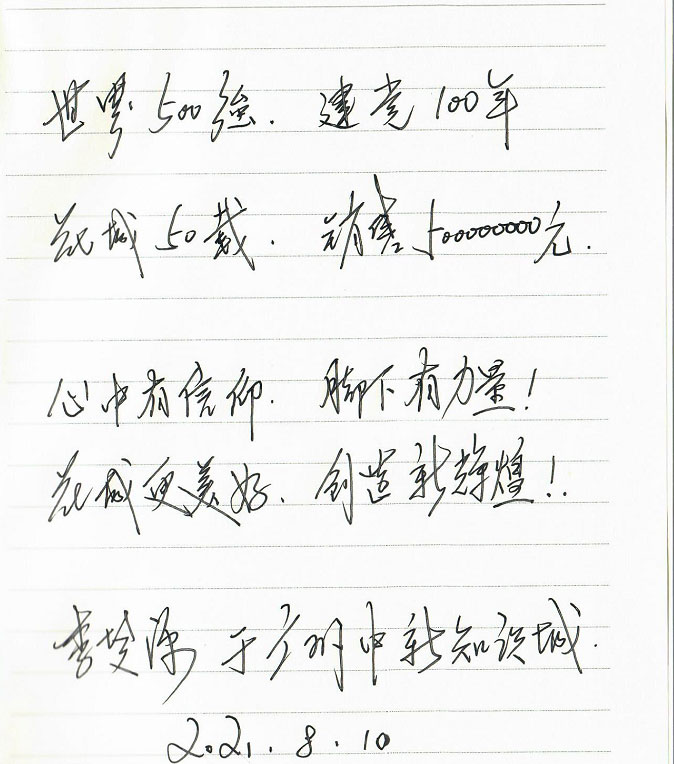 世界500強. 建党100年
花城50载. 销售500000000元.
心中有信仰. 脚下有力量!
花城更美好. 创造新辉煌!!
李楚源 于广州中新知识城.
2021.8.10